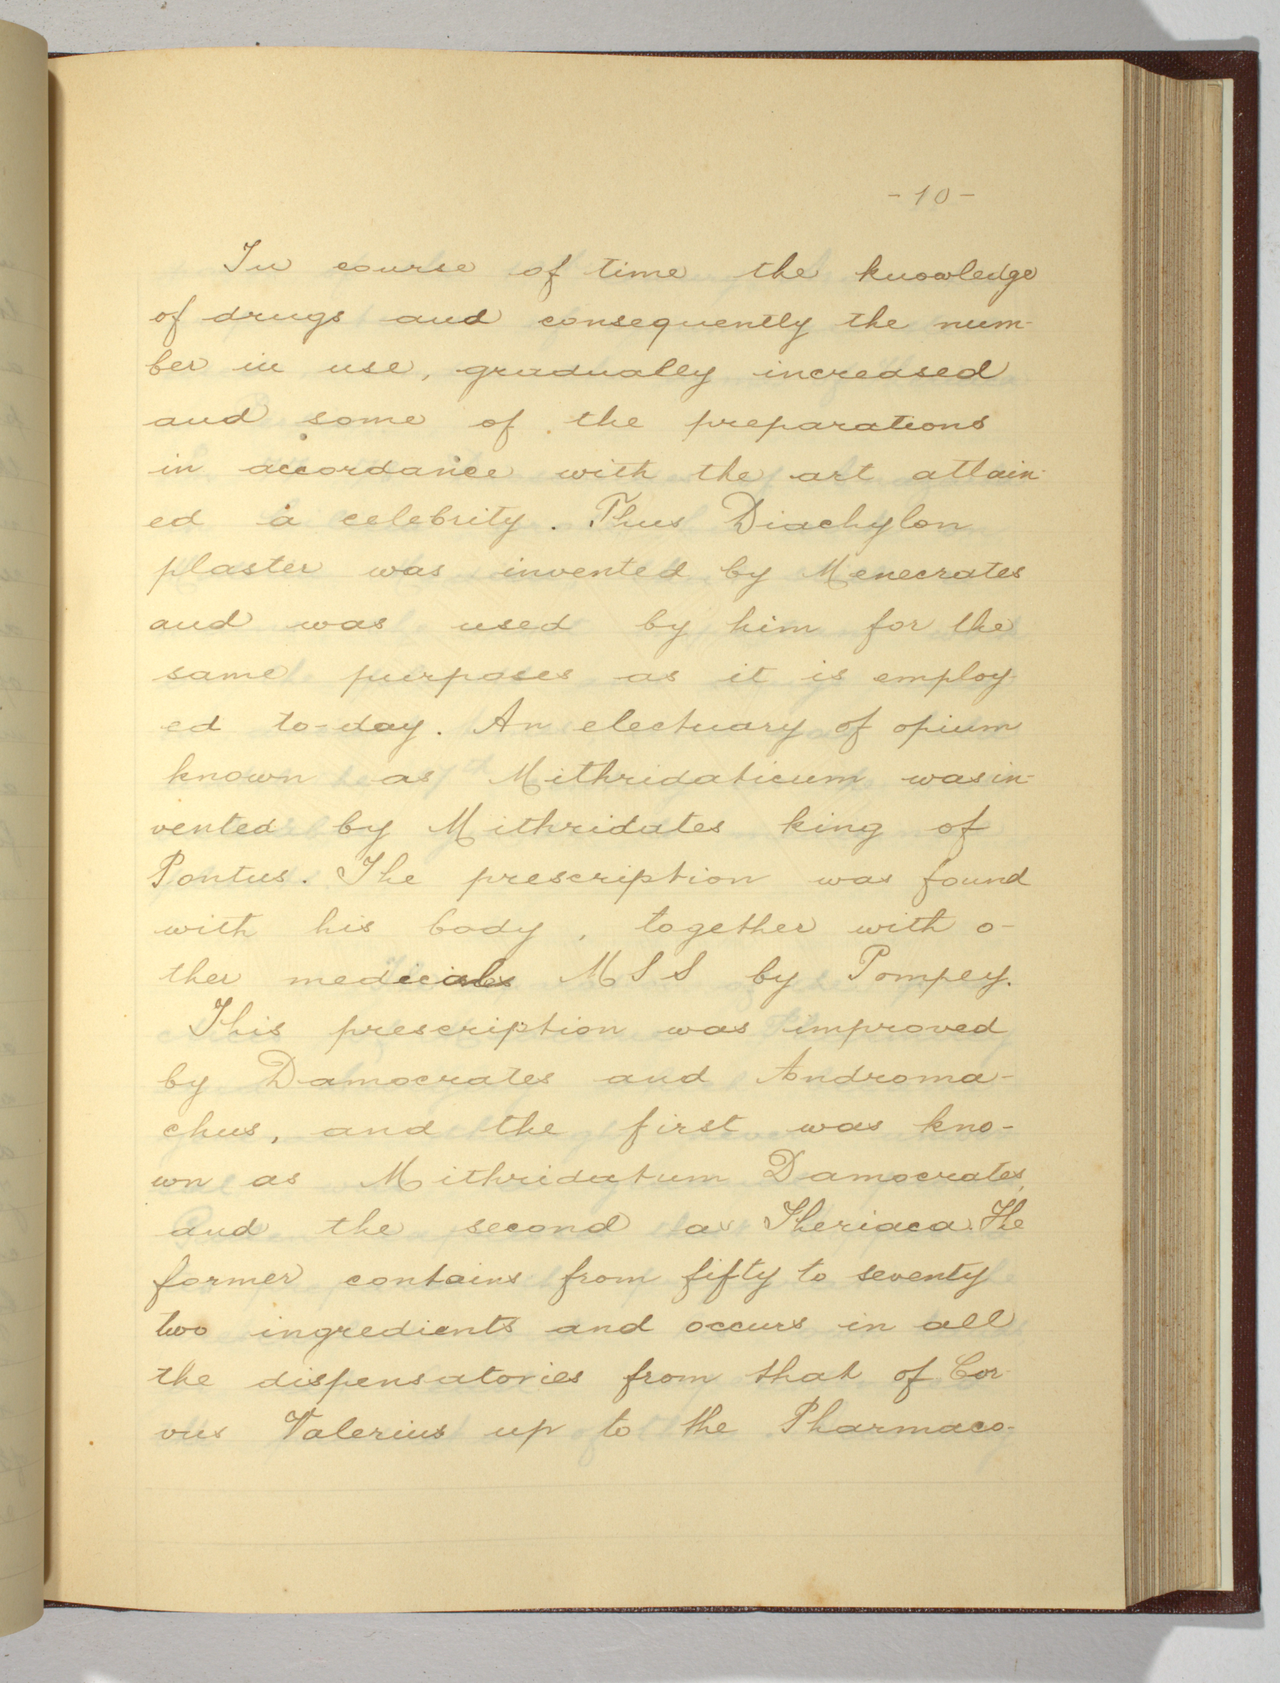 - 10 -
In course of time the knowledge
of drugs and consequently the num-
ber in use, gradually increased
and some of the preparations
in accordance with the art attain-
ed a celebrity. Thus Diachylon
plaster was invented by Menecrates
and was used by him for the
same purposes as it is employ-
ed to-day. An electuary of opium
known as Mithridaticum was in-
vented by Mithridates king of
Pontus. The prescription was found
with his body, together with o-
ther medicinal MSS by Pompey.
This prescription was improved
by Damocrates and Androma-
chus, and the first was kno-
wn as Mithridatum Damocrates,
and the second as Theriaca. The
former contains from fifty to seventy
two ingredients and occurs in all
the dispensatories from that of Cor-
vus Valerius up to the Pharmaco-